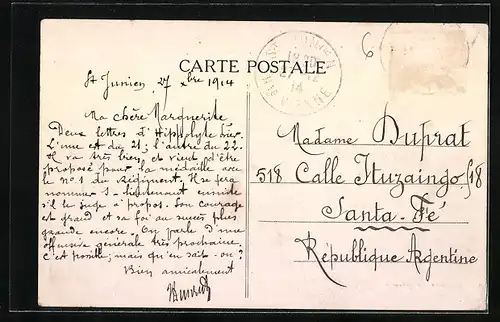 CARTE POSTALE
St Junien, 27 xbre 1914
Ma chère Marguerite
Deux lettres d'Hippolyte hier.
L'une est du 21; l'autre du 22.
Il va très bien et vient d'être
proposé pour la médaille avec
le no 1 du Régiment. Il se fera
nommer s-lieutenant ensuite
s'il le juge à propos. Son courage
est grand et sa foi au succès plus
grande encore. On parle d'une
offensive générale très prochaine.
C'est possible; mais qu'en sait-on?
Bien amicalement
Madame Duprat
518 Calle Ituzaingo 518
Santa-Fé
République Argentine
6
ST JUNIEN
27 12
14
Hte VIENNE